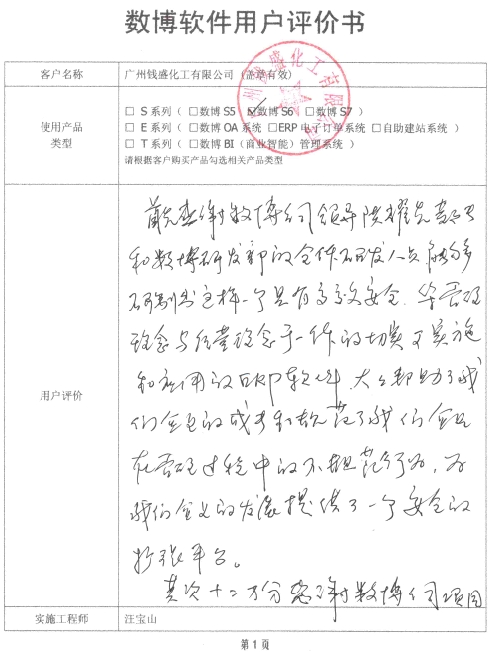 数博软件用户评价书
客户名称 广州钱盛化工有限公司（盖章有效）
使用产品类型
□ S 系列（ □数博 S5 ☑数博 S6 □数博 S7 ）
□ E 系列（ □数博 OA 系统 □ERP 电子订单系统 □自助建站系统 ）
□ T 系列（ □数博 BI（商业智能）管理系统 ）
请根据客户购买产品勾选相关产品类型
用户评价
首先感谢数博公司领导陈耀先
和数博研发部的全体研发人员能够
研制出这样一个具有高效安全
理念与经营理念于一体的切实可实施
和应用的ERP软件，大大帮助了我
们企业的成长和规范了我们企业
在管理过程中的不规范行为，为
我们企业的发展提供了一个安全的
扩张平台。
其次十二万分感谢数博公司项目
实施工程师 汪宝山
第 1 页